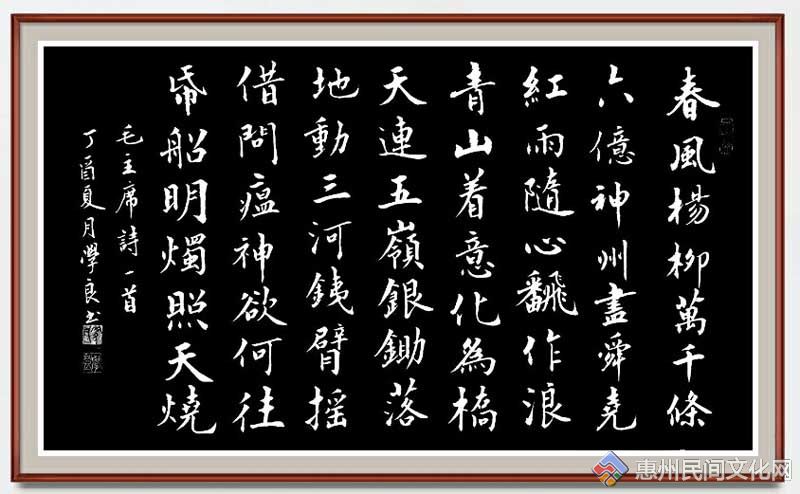 春風楊柳萬千條
六億神州盡舜堯
紅雨隨心飜作浪
青山着意化為橋
天連五嶺銀鋤落
地動三河銕臂摇
借問瘟神欲何往
帋船明燭照天燒
毛主席詩一首
丁酉夏月學良书
惠州民间文化网